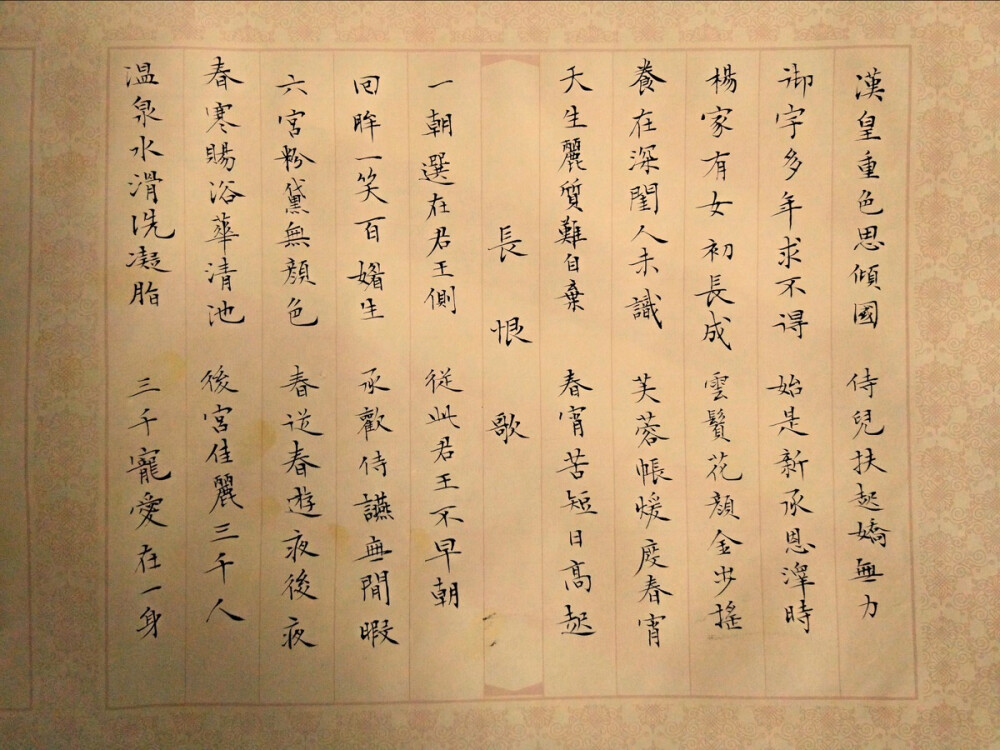 長恨歌
漢皇重色思傾國
御宇多年求不得
楊家有女初長成
養在深閨人未識
天生麗質難自棄
一朝選在君王側
回眸一笑百媚生
六宮粉黛無顏色
春寒賜浴華清池
温泉水滑洗凝脂
侍兒扶起嬌無力
始是新承恩澤時
雲鬢花顏金步搖
芙蓉帳煖度春宵
春宵苦短日高起
從此君王不早朝
承歡侍讌無閒暇
春從春遊夜後夜
後宮佳麗三千人
三千寵愛在一身